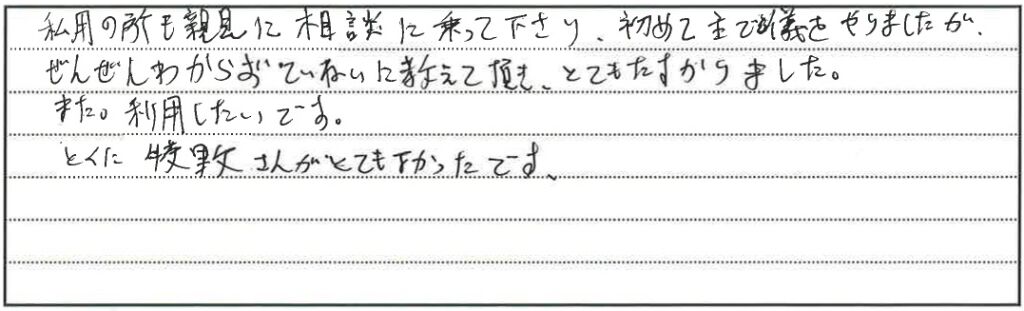 私用の所も親見に相談に乗って下さり、初めて主で儀をやりましたが、
ぜんぜんわからずていねいに教えて頂き、とてもたすかりました。
また。利用したいです。
とくに さんがとても よかったです、